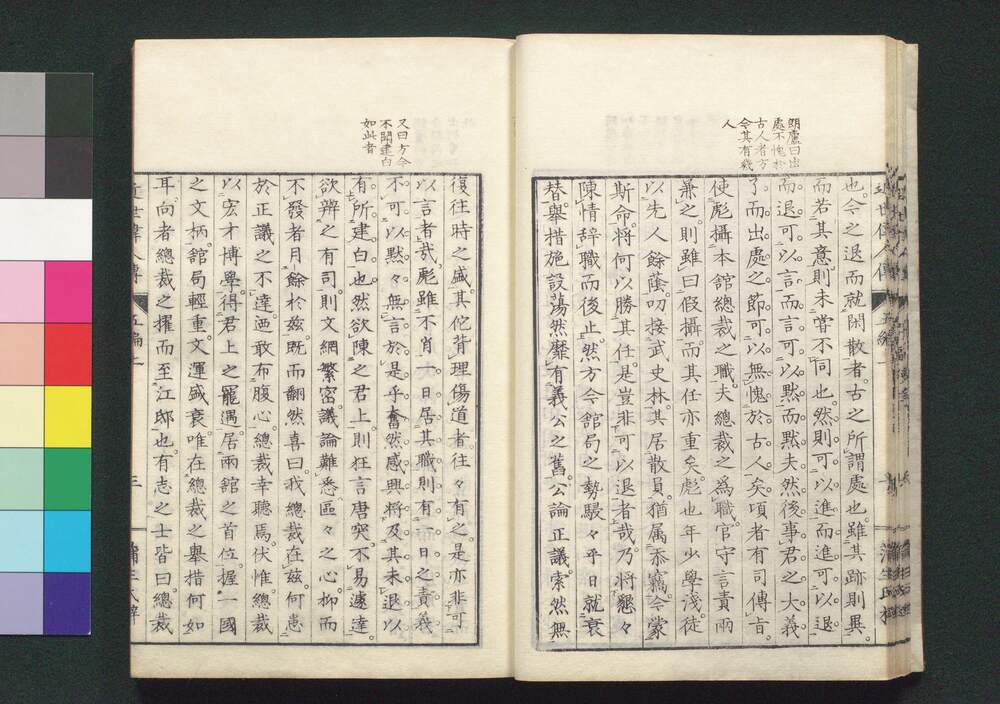 朗廬曰出
處不愧於
古人者方
今其有幾
人
也今之退而就閑散者古之所謂處也雖其跡則異
而若其意則未嘗不同也然則可以進而進可以退
而退可以言而言可以默而默夫然後事君之大義
了而出處之節可以無愧於古人矣頃者有司傳旨
使彪攝本館總裁之職夫總裁之為職官守言責兩
兼之則雖曰假攝而其任亦重矣彪也年少學淺徒
以先人餘蔭叨接武史林其居散員猶屬忝竊今蒙
斯命將何以勝其任是豈非可以退者哉乃將懇々
陳情辞職而後止然方今舘局之勢駸々乎日就衰
替舉措施設蕩然靡有義公之舊公論正議索然無
又曰方今
不聞建白
如此者
復往時之盛其佗背理傷道者往々有之是亦非可
以言者哉彪雖不肖一日居其職則有一日之責義
不可以默々無言於是乎奮然感興將及其未退以
有所建白也然欲陳之君上則狂言唐突不易遽達
欲辨之有司則文網繁密議論難悉區々之心抑而
不發者月餘於茲既而翻然喜曰我總裁在茲何患
於正議之不達迺敢布腹心總裁幸聽焉伏惟總裁
以宏才博學得君上之寵遇居兩舘之首位握一國
之文柄舘局輕重文運盛衰唯在總裁之舉措何如
耳向者總裁之擢而至江邸也有志之士皆曰總裁
近世偉人傳
五編
三
蒲生氏梓